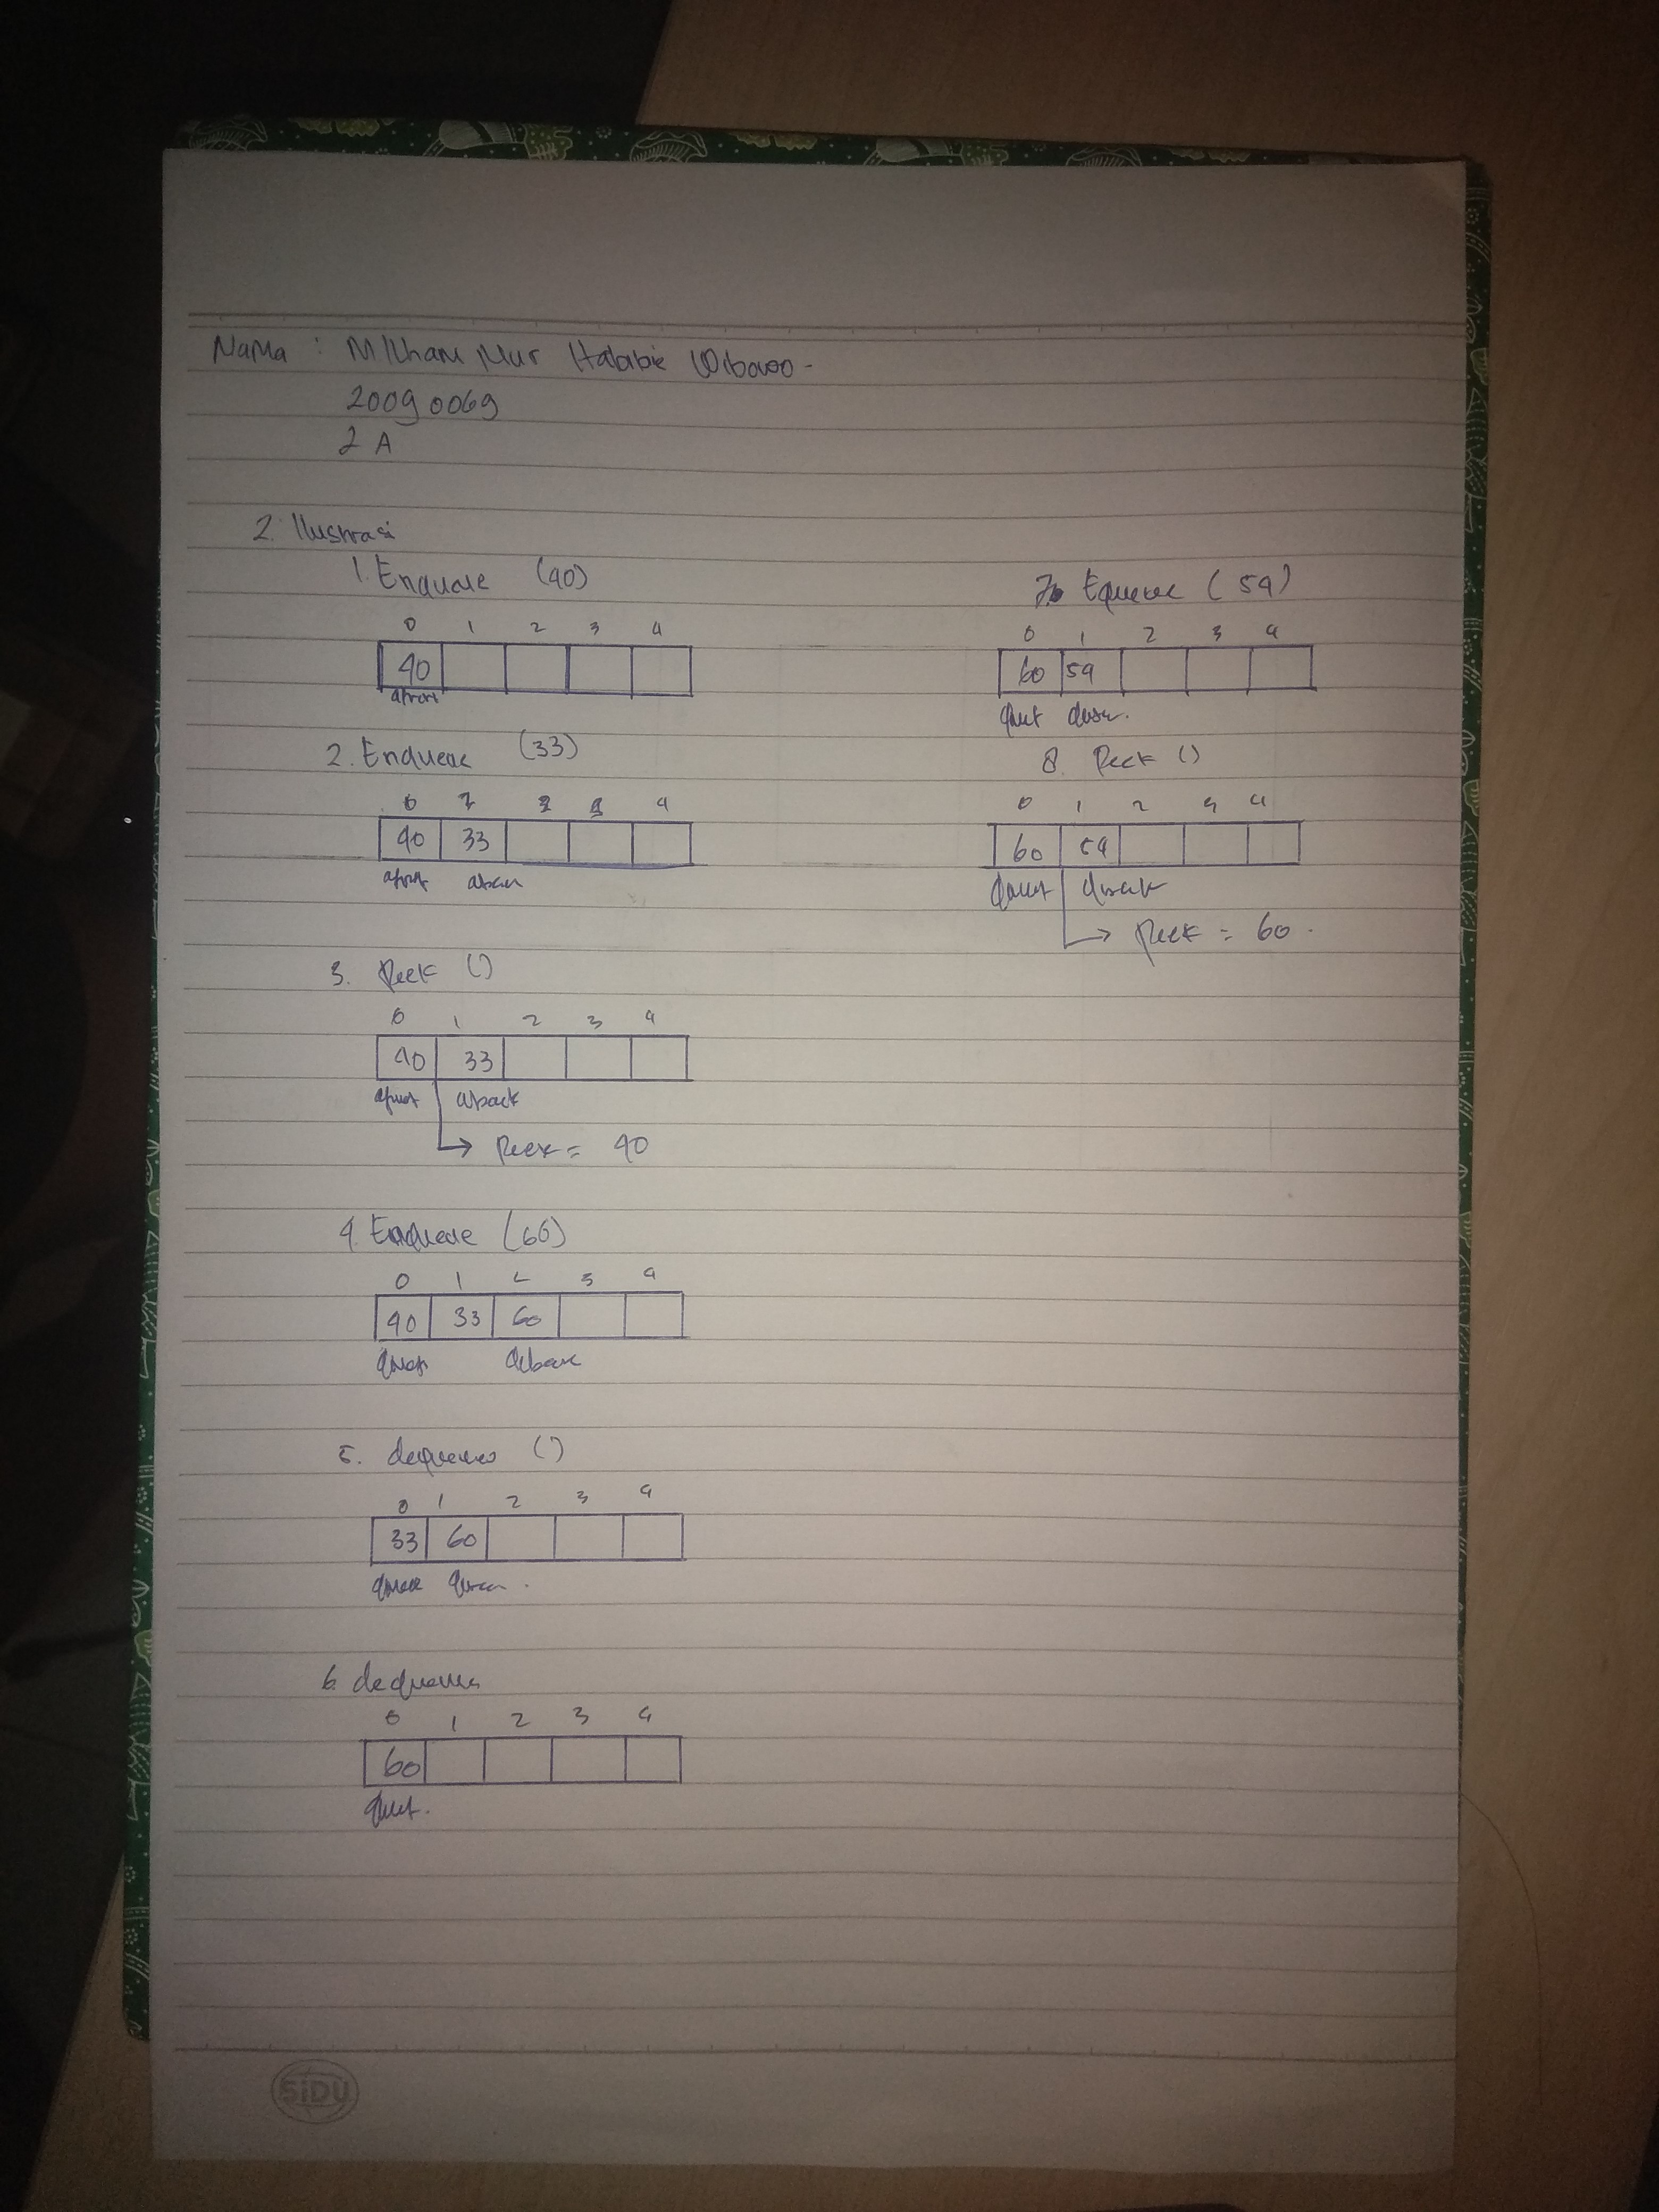 Nama : M Ilham Nur Habibie Wibowo -
20090069
2 A
2. Ilustrasi
1. Enqueue (40)
0 1 2 3 4
40
qfront
2. Enqueue (33)
0 1 2 3 4
40 33
qfront qback
3. Peek ()
0 1 2 3 4
40 33
qfront qback
→ Peek = 40
4. Enqueue (60)
0 1 2 3 4
40 33 60
qback
5. dequeue ()
0 1 2 3 4
33 60
6. dequeue
0 1 2 3 4
60
7. Equeue (54)
0 1 2 3 4
60 54
8. Peek ()
0 1 2 4
60 54
qback
→ Peek = 60.
SiDU